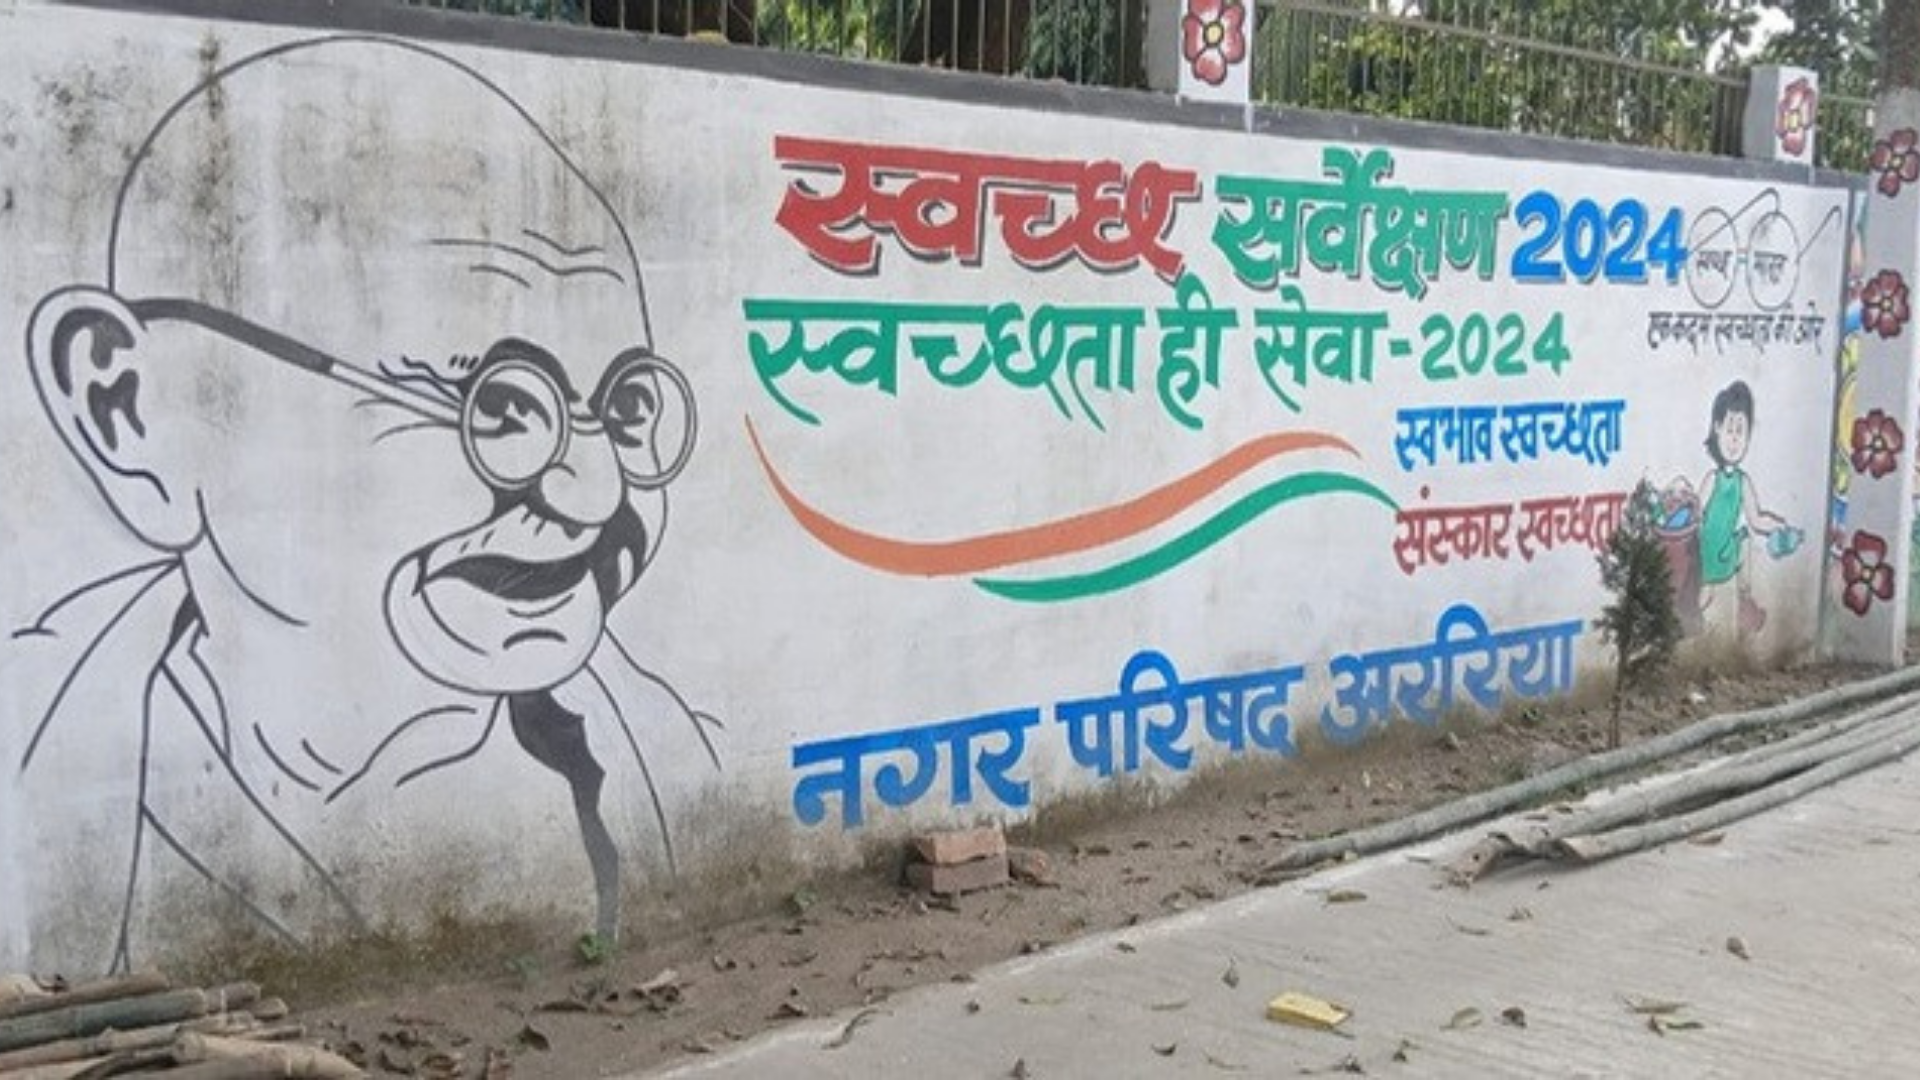 स्वच्छ सर्वेक्षण 2024
स्वच्छ भारत
एक कदम स्वच्छता की ओर
स्वच्छता ही सेवा - 2024
स्वभाव स्वच्छता
संस्कार स्वच्छता
नगर परिषद अररिया